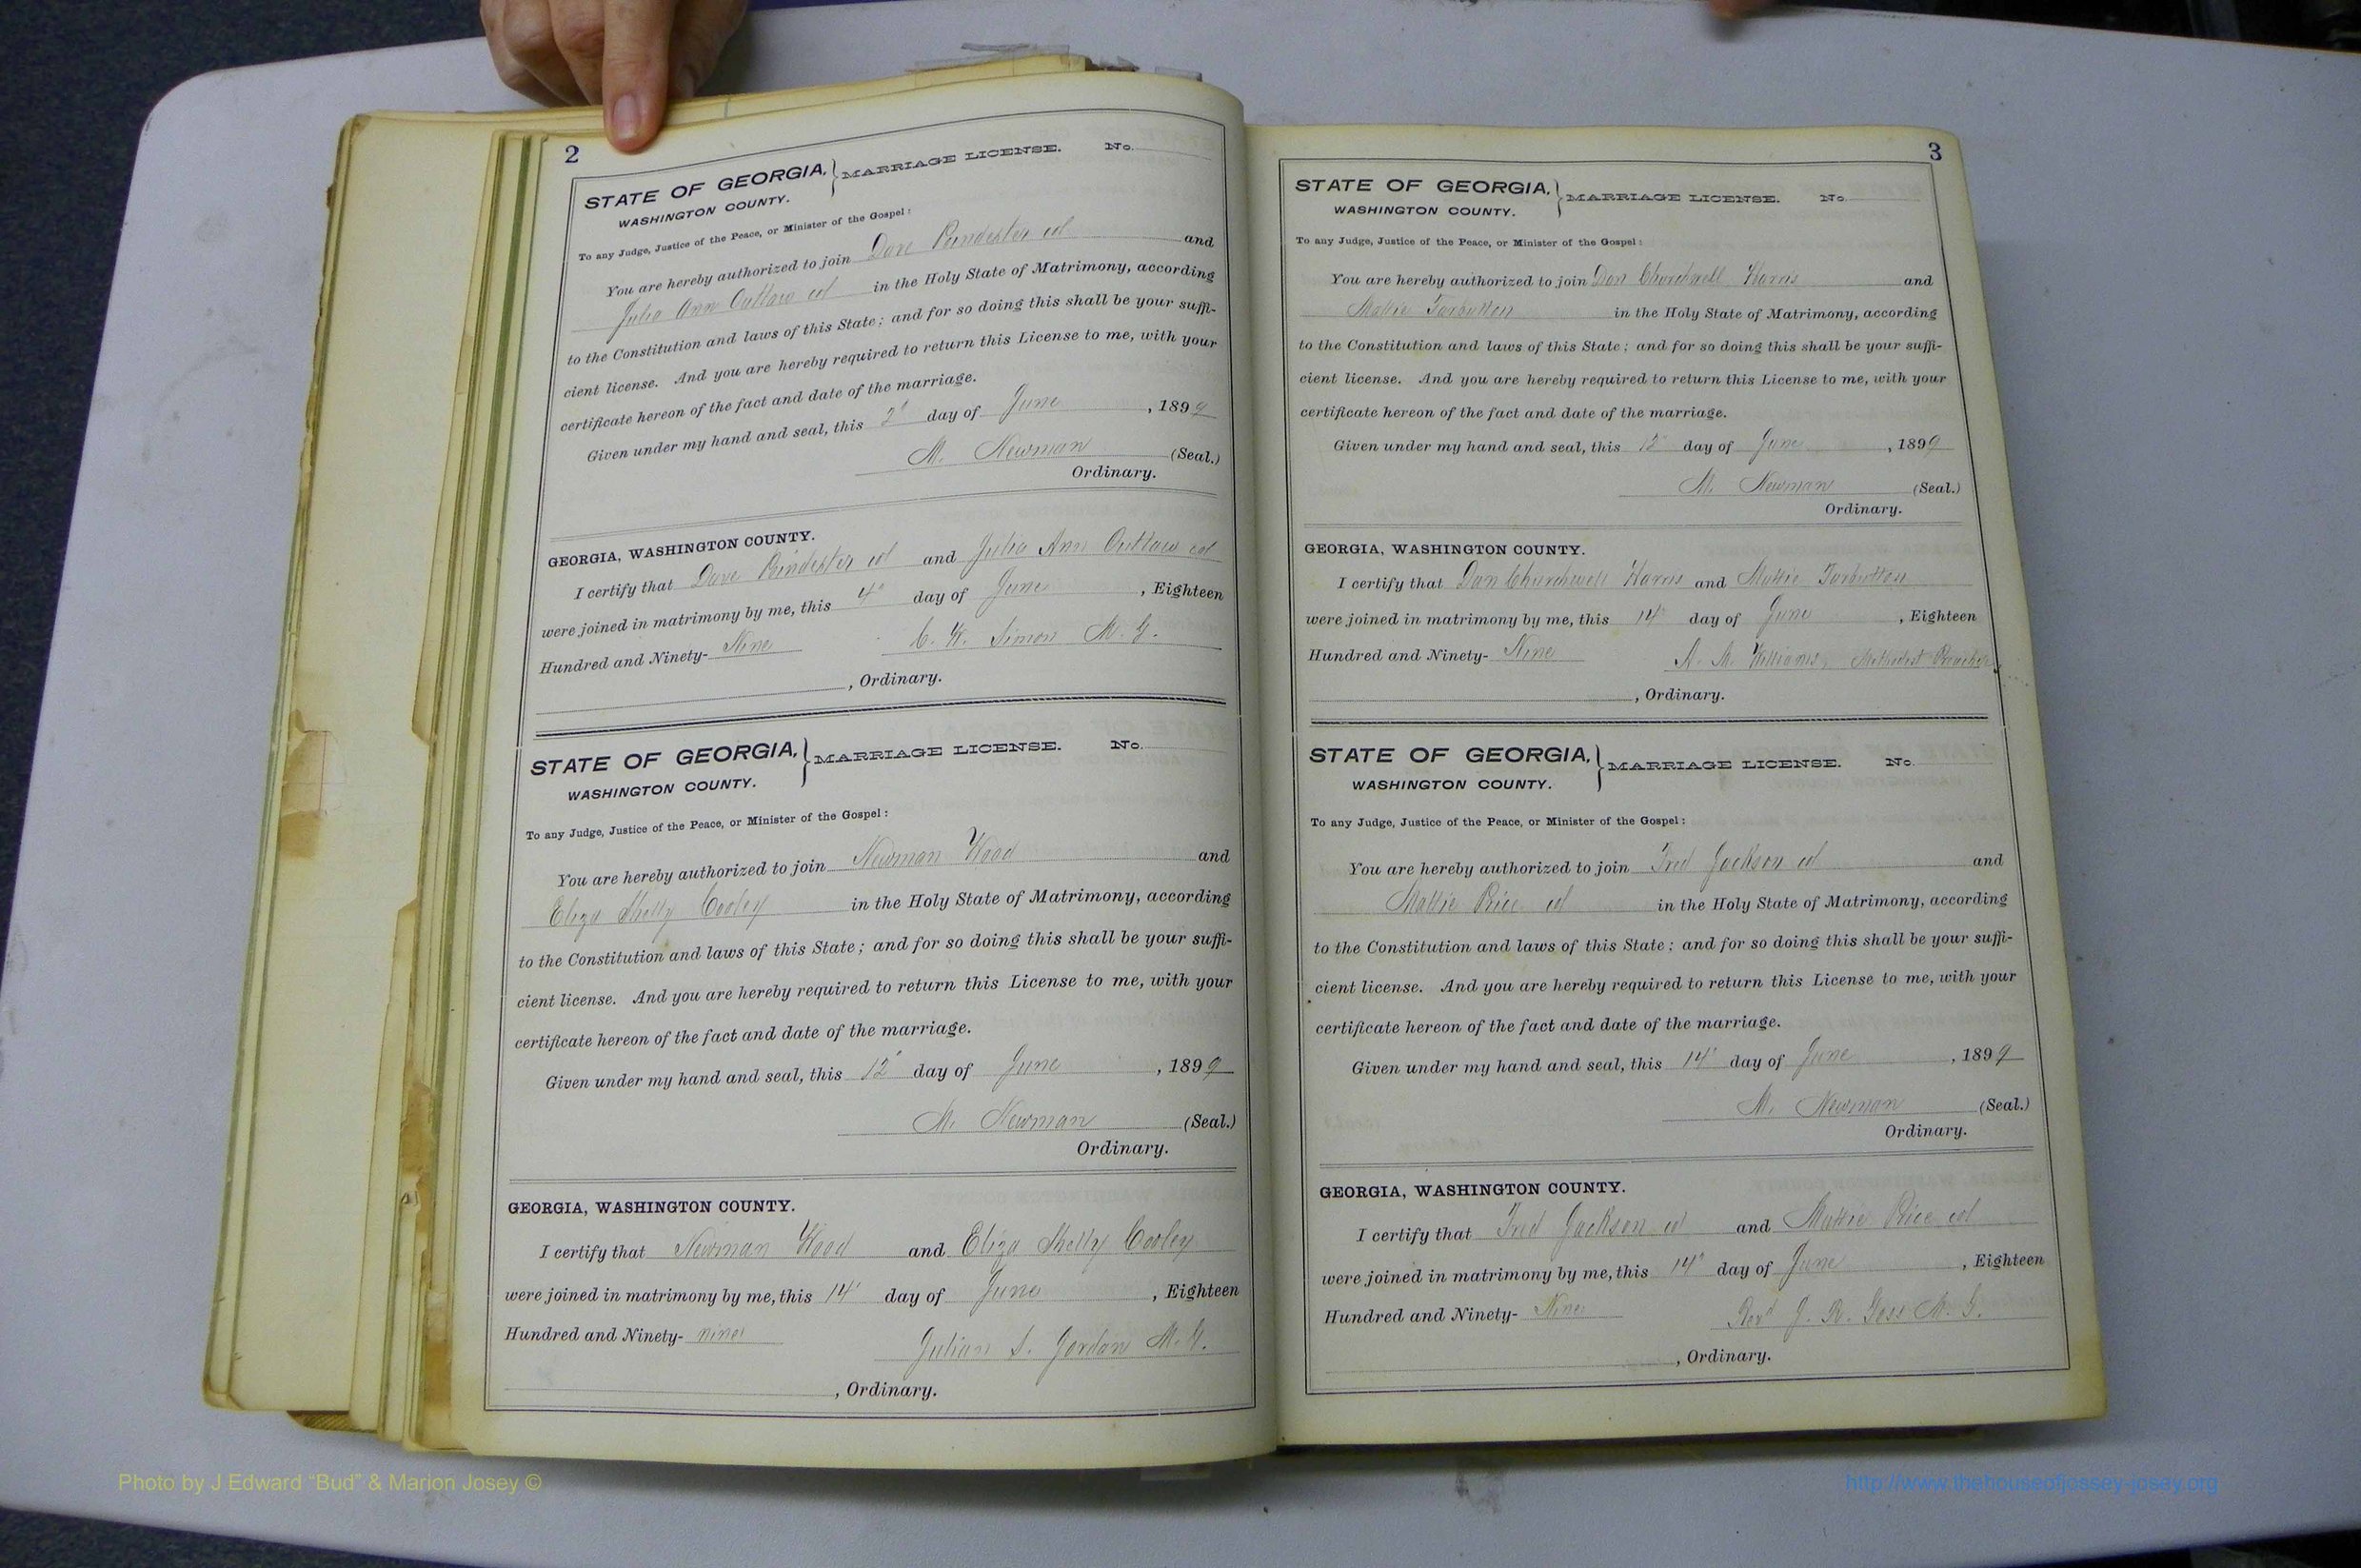 2
STATE OF GEORGIA, } MARRIAGE LICENSE. No.
WASHINGTON COUNTY.
To any Judge, Justice of the Peace, or Minister of the Gospel:
You are hereby authorized to join Dave Poindexter col and
Julia Ann Outlaw col in the Holy State of Matrimony, according
to the Constitution and laws of this State; and for so doing this shall be your suffi-
cient license. And you are hereby required to return this License to me, with your
certificate hereon of the fact and date of the marriage.
Given under my hand and seal, this 2" day of June, 1899
M. Newman (Seal.)
Ordinary.
GEORGIA, WASHINGTON COUNTY.
I certify that Dave Poindexter col and Julia Ann Outlaw col
were joined in matrimony by me, this 4" day of June, Eighteen
Hundred and Ninety- Nine C. W. Simon M. G.
, Ordinary.
STATE OF GEORGIA, } MARRIAGE LICENSE. No.
WASHINGTON COUNTY.
To any Judge, Justice of the Peace, or Minister of the Gospel:
You are hereby authorized to join Newman Wood and
Eliza Shelly Cooley in the Holy State of Matrimony, according
to the Constitution and laws of this State; and for so doing this shall be your suffi-
cient license. And you are hereby required to return this License to me, with your
certificate hereon of the fact and date of the marriage.
Given under my hand and seal, this 12" day of June, 1899
M. Newman (Seal.)
Ordinary.
GEORGIA, WASHINGTON COUNTY.
I certify that Newman Wood and Eliza Shelly Cooley
were joined in matrimony by me, this 14" day of June, Eighteen
Hundred and Ninety- nine Julian S. Jordan M. G.
, Ordinary.
3
STATE OF GEORGIA, } MARRIAGE LICENSE. No.
WASHINGTON COUNTY.
To any Judge, Justice of the Peace, or Minister of the Gospel:
You are hereby authorized to join Dan Churchwell Harris and
Mattie Tarbutton in the Holy State of Matrimony, according
to the Constitution and laws of this State; and for so doing this shall be your suffi-
cient license. And you are hereby required to return this License to me, with your
certificate hereon of the fact and date of the marriage.
Given under my hand and seal, this 12" day of June, 1899
M. Newman (Seal.)
Ordinary.
GEORGIA, WASHINGTON COUNTY.
I certify that Dan Churchwell Harris and Mattie Tarbutton
were joined in matrimony by me, this 14" day of June, Eighteen
Hundred and Ninety- Nine A. M. Williams, Methodist Preacher
, Ordinary.
STATE OF GEORGIA, } MARRIAGE LICENSE. No.
WASHINGTON COUNTY.
To any Judge, Justice of the Peace, or Minister of the Gospel:
You are hereby authorized to join Fred Jackson col and
Mattie Rice col in the Holy State of Matrimony, according
to the Constitution and laws of this State; and for so doing this shall be your suffi-
cient license. And you are hereby required to return this License to me, with your
certificate hereon of the fact and date of the marriage.
Given under my hand and seal, this 14" day of June, 1899
M. Newman (Seal.)
Ordinary.
GEORGIA, WASHINGTON COUNTY.
I certify that Fred Jackson col and Mattie Rice col
were joined in matrimony by me, this 14" day of June, Eighteen
Hundred and Ninety- Nine Revd J. R. Goss M. G.
, Ordinary.
Photo by J Edward “Bud” & Marion Josey ©
http://www.thehouseofjossey-josey.org